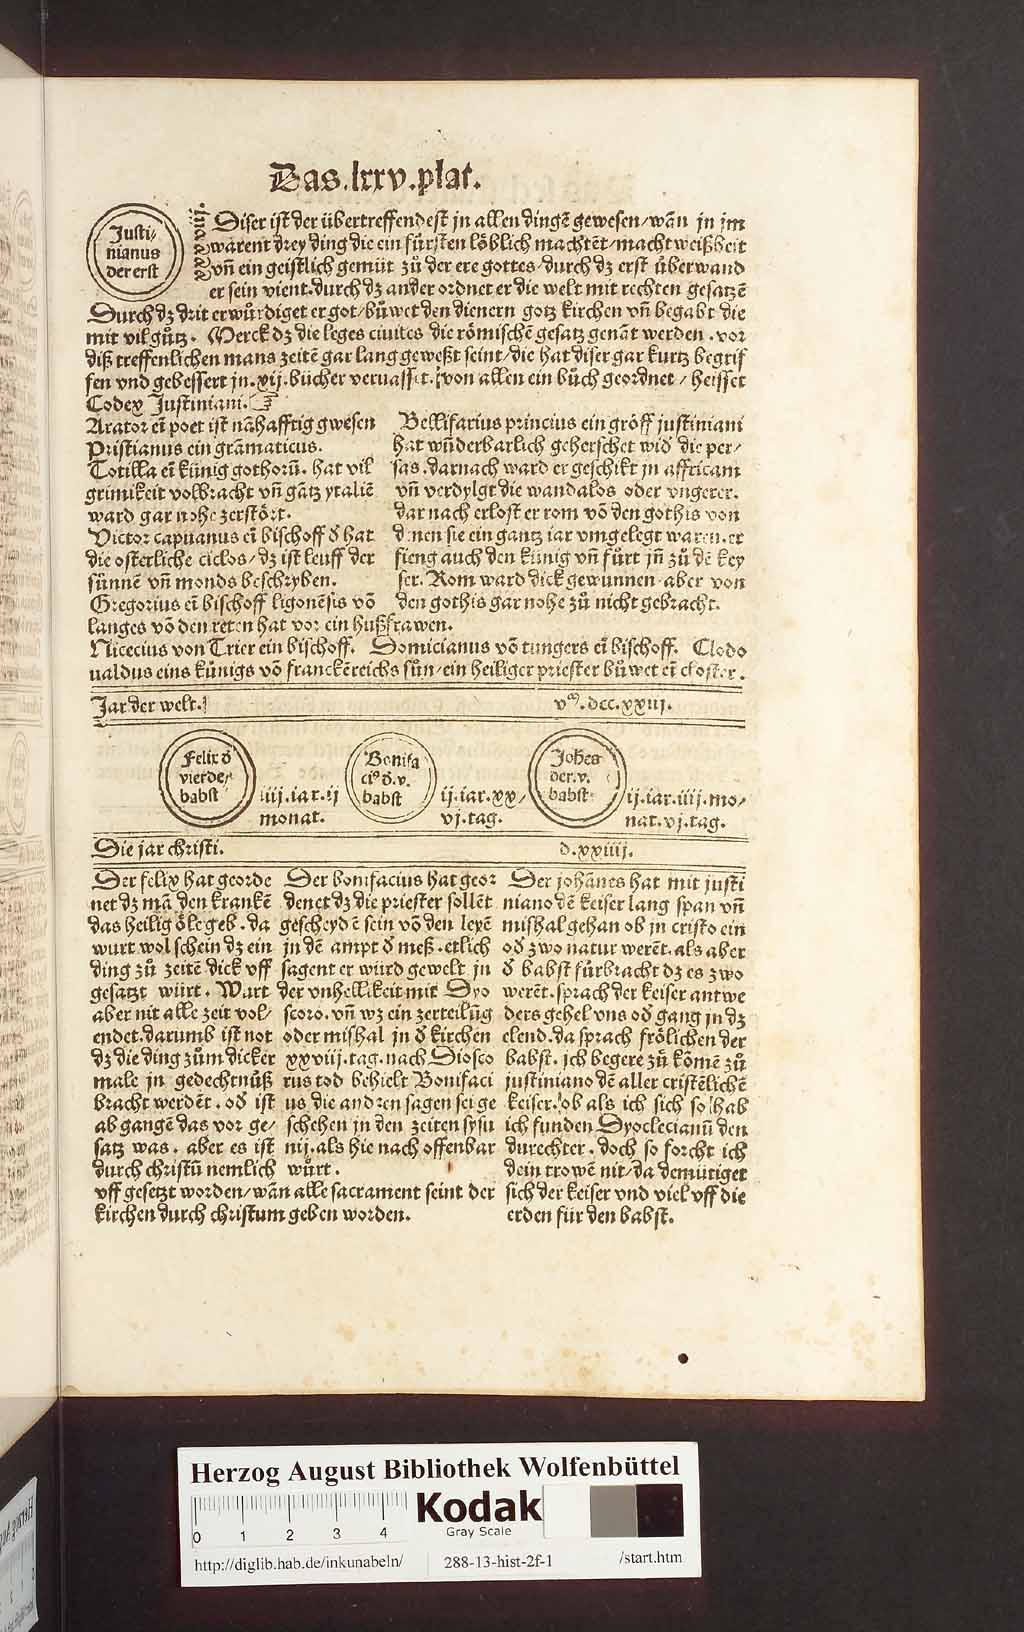 Das.lxxv.plat.
Justi-
nianus
der erst
Diser ist der übertreffendest jn allen dingē gewesen/wān jn jm
warent drey ding die ein fürsten löblich machtēt/macht weißheit
vn̄ ein geistlich gemüt zů der ere gottes/durch dz erst überwand
er sein vient.durch dz ander ordnet er die welt mit rechten gesatzē
Durch dz drit erwürdiget er got/bůwet den dienern gotz kirchen vn̄ begabt die
mit vil gůtz. Merck dz die leges ciuiles die römischē gesatz genāt werden.vor
diß treffenlichen mans zeitē gar lang geweßt seint/die hat diser gar kurtz begrif
fen vnd gebessert jn.xij.bücher veruasset.von allen ein bůch geordnet/heisset
Codex Justiniani.
Arator eī poet ist nāhafftig gwesen
Pristianus ein grāmaticus.
Totilla eī künig gothorū. hat vil
grimikeit volbracht vn̄ gātz ytaliē
ward gar nohe zerstört.
Victor capuanus eī bischoff đ hat
die osterliche ciclos/dz ist leuff der
sünnē vn̄ monds beschryben.
Gregorius eī bischoff ligonēsis vō
langes vō den reten hat vor ein hußfrawen.
Bellisarius princius ein gröff justiniani
hat wūderbarlich geherschet wiđ die per/
sas.darnach ward er geschikt jn affricam
vn̄ verdylgt die wandalos oder vngerer.
dar nach erlost er rom vō den gothis von
denen sie ein gantz iar vmgelegt waren.er
fieng auch den künig vn̄ fůrt jn̄ zů dē key
ser. Rom ward dick gewunnen aber von
den gothis gar nohe zů nicht gebracht.
Nicecius von Trier ein bischoff. Domicianus vō tungers eī bischoff. Clodo
ualdus eins künigs vō franckēreichs sůn/ein heiliger priester bůwet eī closter.
Jar der welt. vͫ.dcc.xxiij.
Felix đ
vierde
babst
iiij.iar.ij
monat.
Bonifa
ciꝰ đ.v.
babst
ij.iar.xx/
vj.tag.
Johēs
der.v.
babst
ij.iar.iiij.mo/
nat.vj.tag.
Die jar christi. d.xxiiij.
Der felix hat georde
net dz mā den krankē
das heilig öle geb.da
wurt wol schein dz ein
ding zů zeitē dick vff
gesatzt würt. Wart
aber nit alle zeit vol/
endet.darumb ist not
dz die ding zům dicker
male jn gedechtnüß
bracht werdēt.ođ ist
ab gangē das vor ge/
satz was. aber es ist
durch christū nemlich
vff gesetzt worden/wān alle sacrament seint der
kirchen durch christum geben worden.
Der bonifacius hat geor
denet dz die priester sollēt
gescheydē sein vō den leyē
jn dē ampt đ meß.etlich
sagent er würd gewelt jn
der vnhellikeit mit Dyo
scoro.vn̄ wz ein zerteilūg
oder mishal jn đ kirchen
xxviij.tag.nach Diosco
rus tod behielt Bonifaci
us die andren sagen sei ge
schehen jn den zeiten sysu
nij.als hie nach offenbar
würt.
Der johānes hat mit justi
niano dē keiser lang span vn̄
mishal gehan ob jn cristo ein
ođ zwo natur werēt.als aber
đ babst fürbracht dz es zwo
werēt.sprach der keiser antwe
ders gehel vns ođ gang jn dz
elend.da sprach frölichen der
babst. jch begere zů kōmē zů
justiniano dē aller cristēlichē
keiser.ob als ich sich so hab
ich funden Dyoclecianū den
durechter. doch so forcht ich
dein trowē nit/da demütiget
sich der keiser vnd viel vff die
erden für den babst.
Herzog August Bibliothek Wolfenbüttel
0 1 2 3 4
Kodak
Gray Scale
http://diglib.hab.de/inkunabeln/ 288-13-hist-2f-1 /start.htm